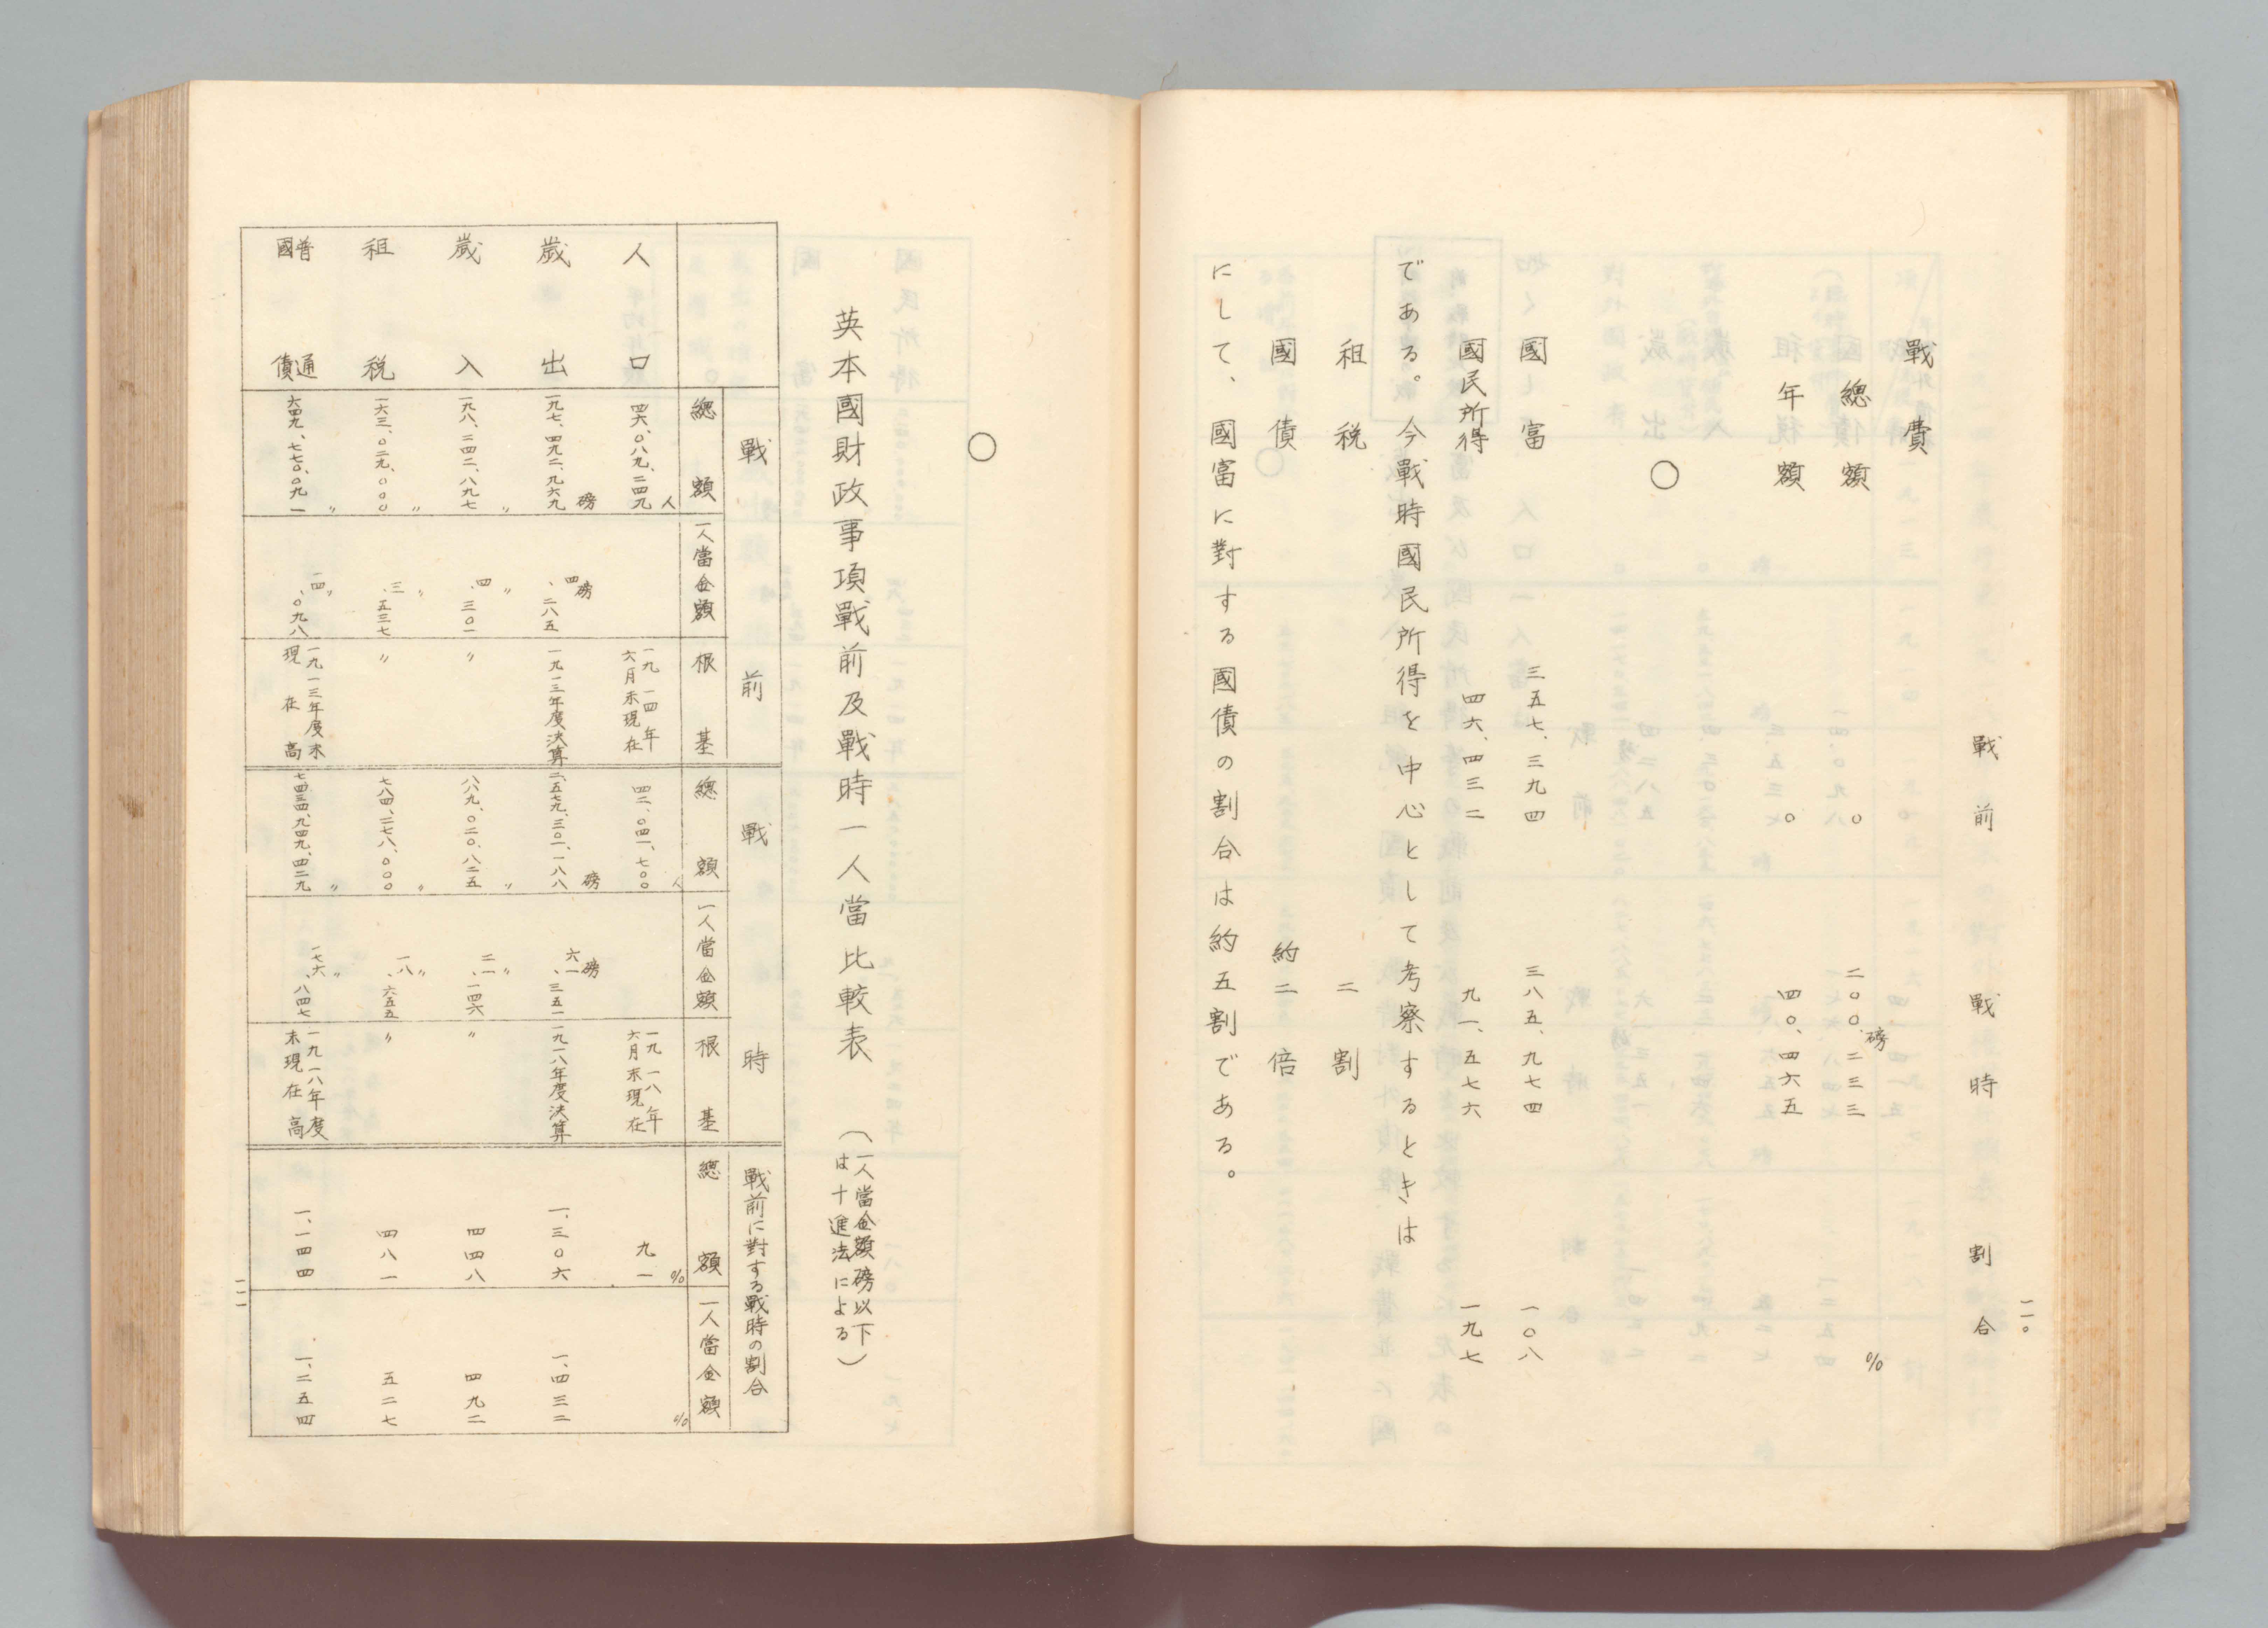 一一〇
戰前 戰時 割合
戰費
總額 〇 二〇〇、二三三磅 %
年額 〇 四〇、四六五
〇
國富 三五七、三九四 三八五、九七四 一〇八
國民所得 四六、四三二 九一、五七六 一九七
である。今戰時國民所得を中心として考察するときは
租税 二割
國債 約二倍
にして、國富に對する國債の割合は約五割である。
〇
英本國財政事項戰前及戰時一人當比較表 (一人當金額磅以下は十進法による)
戰前 戰時 戰前に對する戰時の割合
總額 一人當金額 根基 總額 一人當金額 根基 總額 一人當金額
人口 四六、〇八九、二四九人 一九一四年六月末現在 四二、〇四一、七〇〇人 一九一八年六月末現在 九一% %
歳出 一九七、四九二、九六九磅 四、二八五磅 一九一三年度決算 二、五七九、三〇一、一八八磅 六一、三五一磅 一九一八年度決算 一、三〇六 一、四三二
歳入 一九八、二四二、八九七〃 四、三〇一〃 〃 八八九、〇二〇、八二五〃 二一、一四六〃 〃 四四八 四九二
租税 一六三、〇二九、〇〇〇〃 三、五三七〃 〃 七八四、二七八、〇〇〇〃 一八、六五五〃 〃 四八一 五二七
普通國債 六四九、七七〇、〇九一〃 一四、〇九八〃 一九一三年度末現在高 七四三四、九四九、四二九〃 一七六、八四七〃 一九一八年度末現在高 一、一四四 一、二五四
一一一